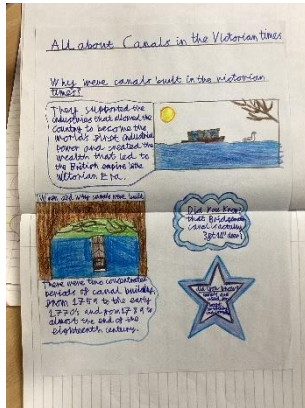 All about Canals in the Victorian times
Why were canals built in the victorian
times?
They supported the
industries that allowed the
country to become the
world's first industrial
power and created the
wealth that led to
the British empire in the
victorian Era.
When and why canals were built
There were two concentrated
periods of canal building,
from 1759 to the early
1770's and from 1789 to
almost the end of the
eighteenth century.
Did you know?
that Bridgewater
canal is actually
Did you know